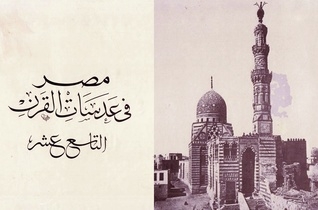 مصر
في عدسات القرن
التاسع عشر